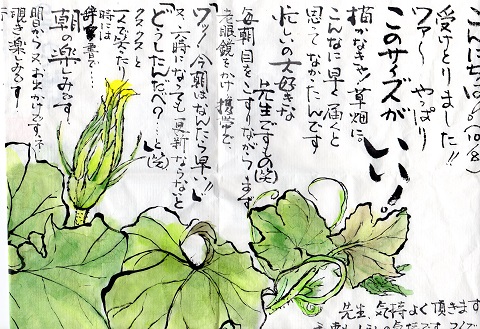 こんにちは。(10/8)
受けとりました!!
ワァ〜 やっぱり
このサイズが
いい!
描かなきゃ!草畑に。
こんなに早く届くと
思ってなかったんです
忙しいの大好きな
先生ですもの(笑)
毎朝目をこすりながらつまず
老眼鏡をかけ携帯で、
「ワッ〜今朝はなんたら早い!!」
又、六時になっても更新ならないと
「どうしたんだべ?…」と(笑)
クスクスと
一人で笑ったり
時には
辞書で…
朝の楽しみです
明日から又お出かけです。
覗き楽しみです!
先生、気持よく頂きます